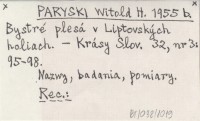 PARYSKI Witold H. 1955 b.
Bystré plesá v Liptovských
holiach. – Krásy Slov. 32, nr 3:
95-98.
Nazwy, badania, pomiary.
Rec.: